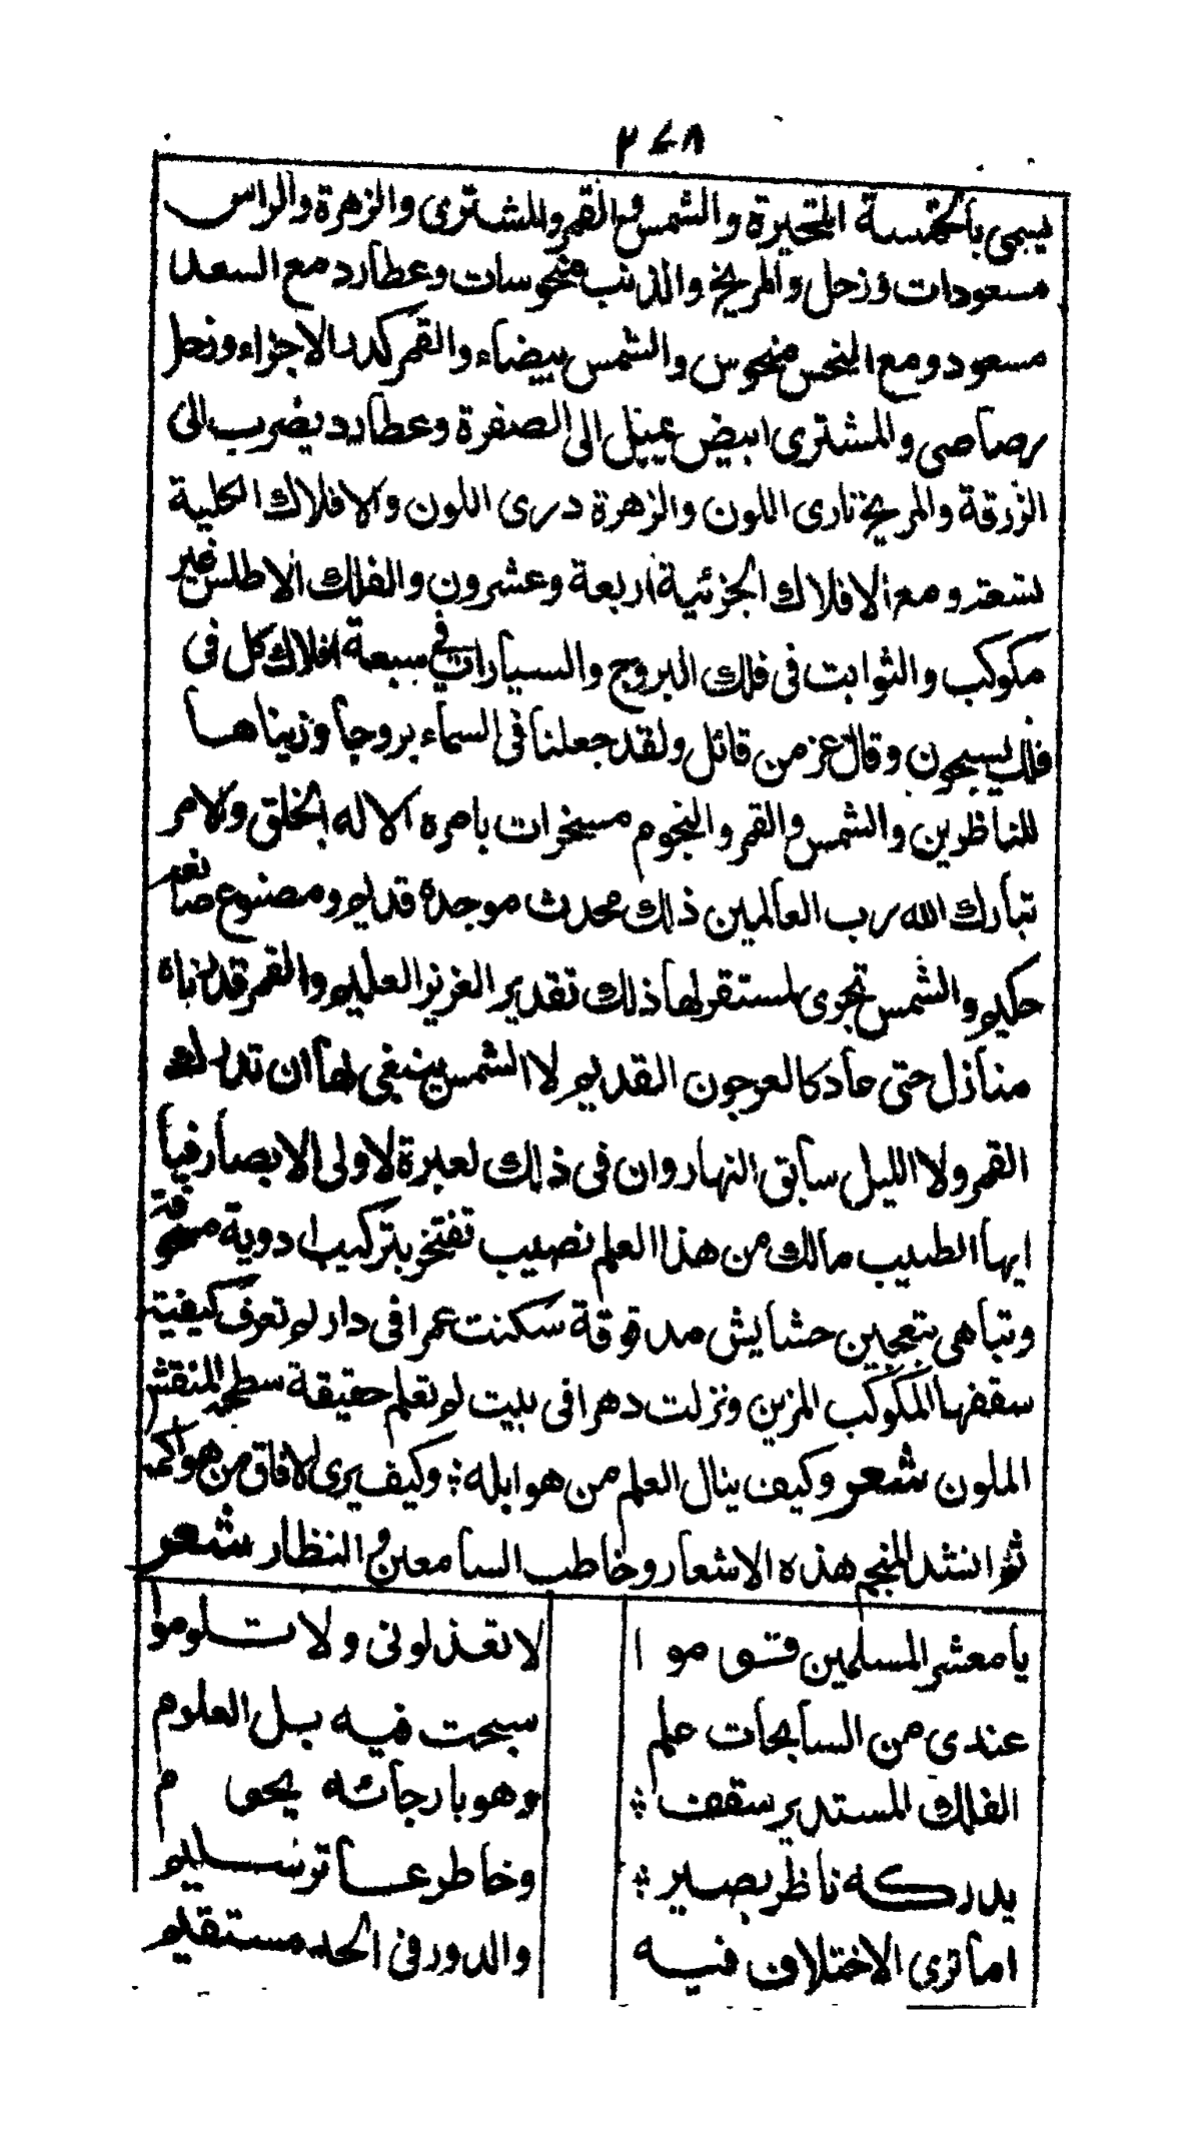 ٢٧٨
يسمى بالخمسة المتحيرة والشمس والقمر والمشترى والزهرة والراس
مسعودات وزحل والمريخ والذنب منحوسات وعطارد مع السعد
مسعود ومع النحس منحوس والشمس بيضاء والقمر كدر الاجزاء وزحل
رصاصى والمشترى ابيض يميل الى الصفرة وعطارد يضرب الى
الزرقة والمريخ نارى اللون والزهرة درى اللون والافلاك الكلية
تسعة ومع الافلاك الجزئية اربعة وعشرون والفلك الاطلس غير
مكوكب والثوابت فى فلك البروج والسيارات فى سبعة افلاك كل فى
فلك يسبحون وقال عز من قائل ولقد جعلنا فى السماء بروجا وزيناها
للناظرين والشمس والقمر والنجوم مسخرات بامره الا له الخلق والامر
تبارك الله رب العالمين ذلك محدث موجده قديم ومصنوع صانعه
حكيم والشمس تجرى لمستقر لها ذلك تقدير العزيز العليم والقمر قدرناه
منازل حتى عاد كالعرجون القديم لا الشمس ينبغى لها ان تدرك
القمر ولا الليل سابق النهار وان فى ذلك لعبرة لاولى الابصار فيا
ايها الطبيب مالك من هذا العلم نصيب تفتخر بتركيب ادوية مسحوقة
وتباهى بتعجين حشايش مدقوقة سكنت عمرا فى دار لم تعرف كيفية
سقفها المكوكب المزين ونزلت دهرا فى بيت لم تعلم حقيقة سطحه المنقش
الملون شعر وكيف ينال العلم من هو ابله ؛ وكيف يرى الافاق من هو اكمه
ثم انشد المنجم هذه الاشعار وخاطب السامعين والنظار شعر
يا معشر المسلمين قوموا لا تعذلونى ولا تلوموا
عندى من السابحات علم سبحت فيه بل العلوم
الفلك المستدير سقف ؛ وهو بارجائه يحوم
يدركه ناظر بصير ؛ وخاطر عا ترسليم
اما ترى الاختلاف فيه والدور فى الحد مستقيم